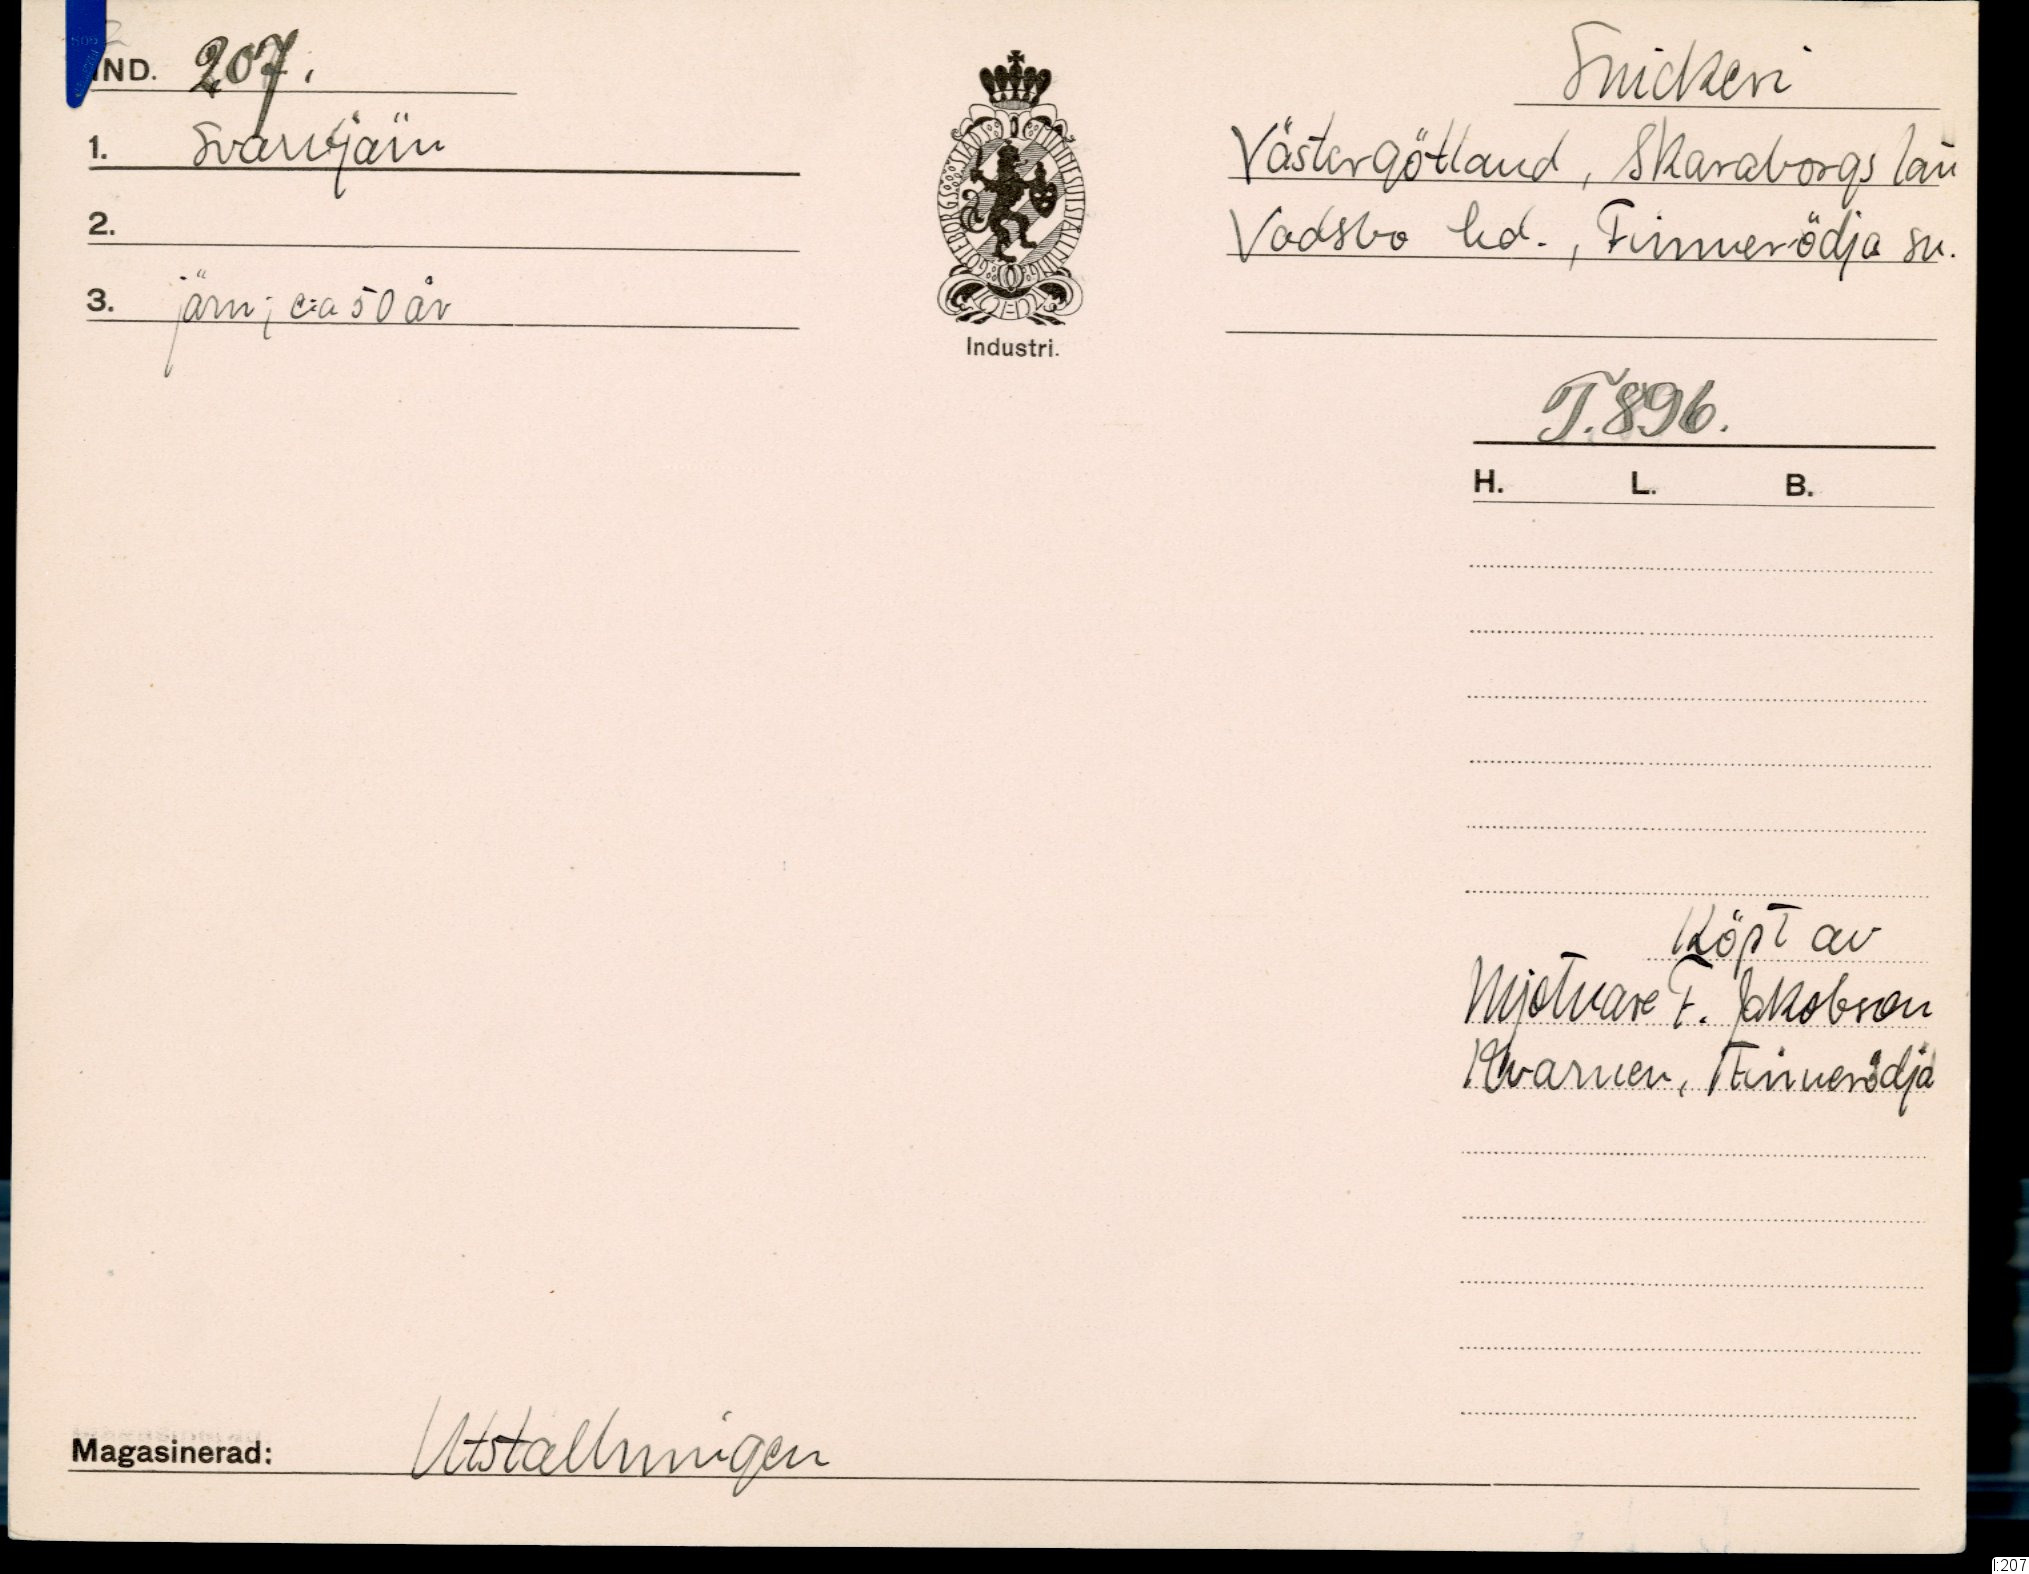 IND. 207.
1. Svarvjärn
2.
3. järn; c:a 50 år
GÖTEBORGS STADS MINNESUTSTÄLLNING
Industri.
Snickeri
Västergötland, Skaraborgs län
Vadsbo hd., Finnerödja sn.
T.896.
H. L. B.
Köpt av
F. Jakobson
Kvarnen, Finnerödja
Magasinerad: Utställningen
I:207